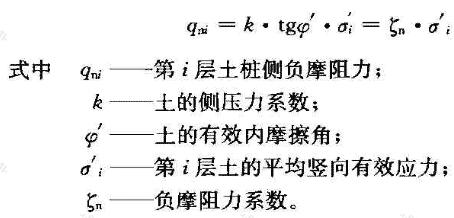 qₙᵢ = k · tgφ′ · σ′ᵢ = ζₙ · σ′ᵢ
式中 qₙᵢ——第 i 层土桩侧负摩阻力;
k ——土的侧压力系数;
φ′ ——土的有效内摩擦角;
σ′ᵢ ——第 i 层土的平均竖向有效应力;
ζₙ ——负摩阻力系数。